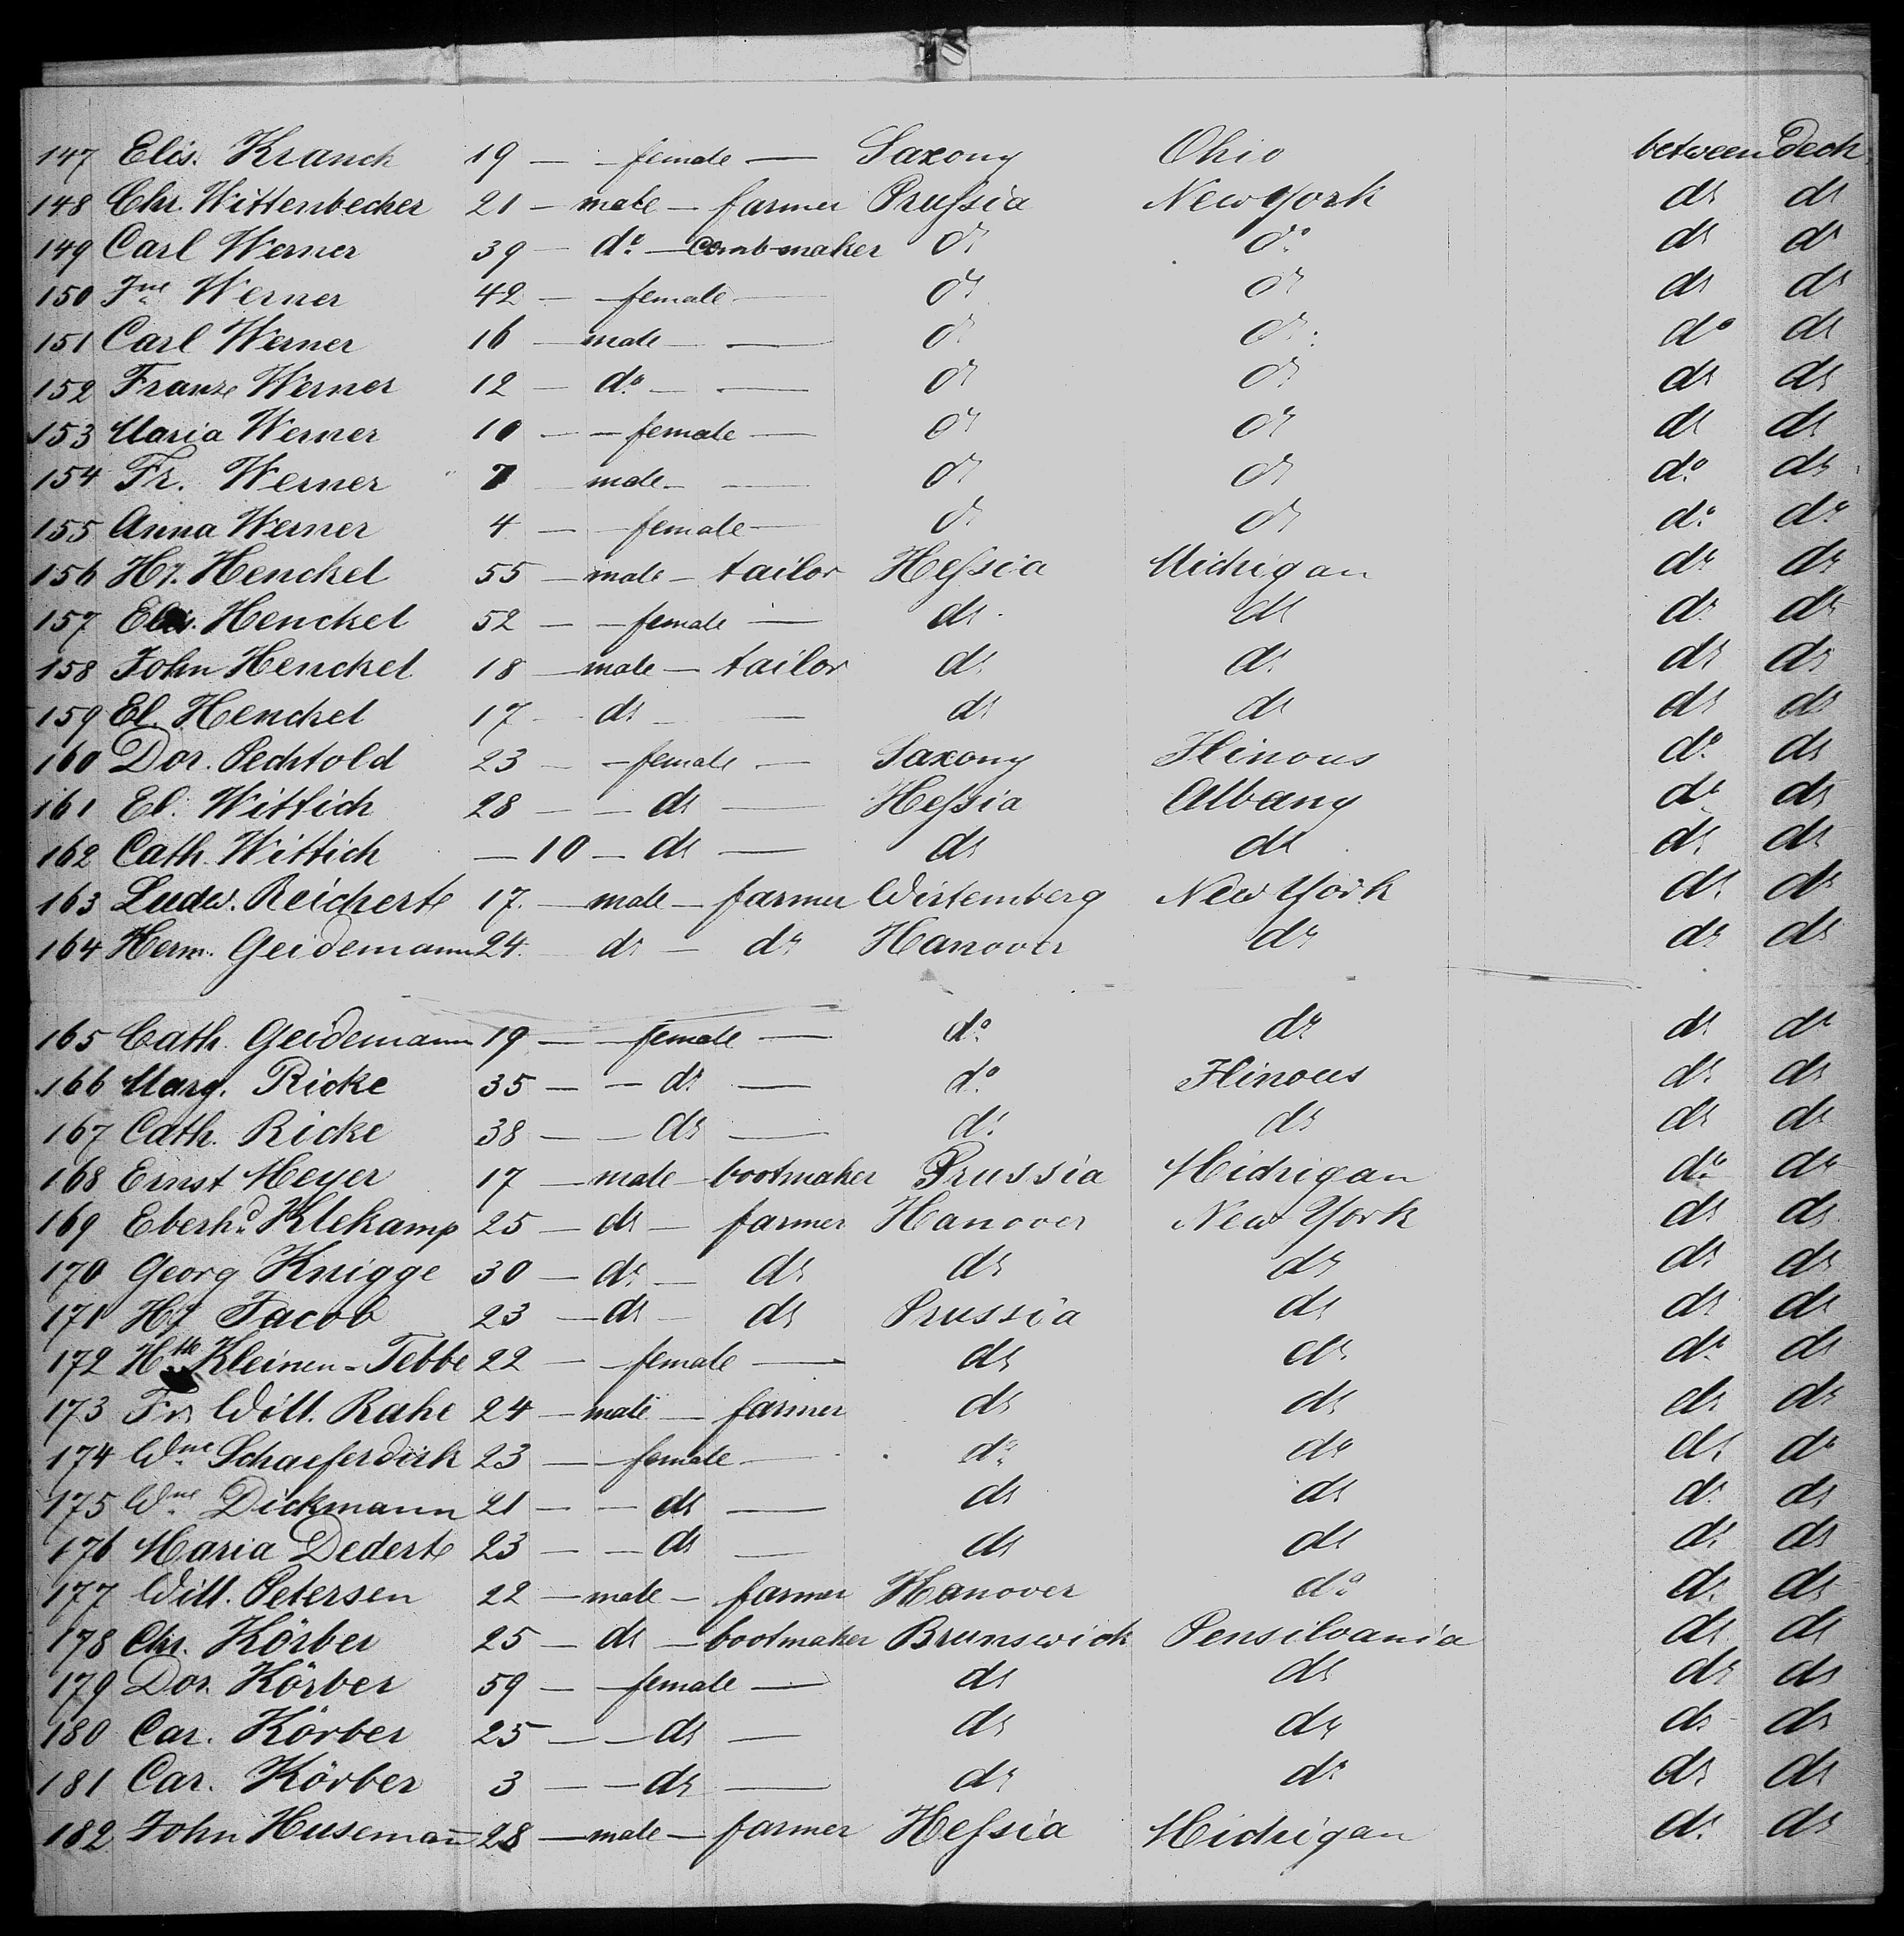 147 Elis. Kranch 19 — — female — Saxony Ohio between Deck
148 Chr. Wittenbecher 21 — male — farmer Prussia New York do do
149 Carl Werner 39 — do — comb-maker do do do do
150 Fne Werner 42 — — female — do do do do
151 Carl Werner 16 — male — — do do do do
152 Franz Werner 12 — do — — do do do do
153 Maria Werner 10 — — female — do do do do
154 Fr. Werner 7 — male — — do do do do
155 Anna Werner 4 — — female — do do do do
156 Hy. Henckel 55 — male — tailor Hessia Michigan do do
157 Elis. Henckel 52 — — female — do do do do
158 John Henckel 18 — male — tailor do do do do
159 El. Henckel 17 — do — — do do do do
160 Dor. Pechtold 23 — — female — Saxony Ilinous do do
161 El. Wittich 28 — — do — Hessia Albany do do
162 Cath. Wittich — 10 — do — do do do do
163 Ludw. Reicherte 17 — male — farmer Wirtemberg New York do do
164 Herm. Geidemann 24 do — do Hanover do do do
165 Cath. Geidemann 19 — — female — do do do do
166 Marg. Ricke 35 — — do — do Ilinous do do
167 Cath. Ricke 38 — — do — do do do do
168 Ernst Meyer 17 — male — bootmaker Prussia Michigan do do
169 Eberhd Klekamp 25 — do — farmer Hanover New York do do
170 Georg Knigge 30 — do — do do do do do
171 Hy Jacob 23 — do — do Prussia do do do
172 Htte Kleinen-Tebbe 22 — — female — do do do do
173 Fr. Will. Rahe 24 — male — farmer do do do do
174 Wne Schaeferdirk 23 — — female — do do do do
175 Wne Dickmann 21 — — do — do do do do
176 Maria Dederte 23 — — do — do do do do
177 Will. Petersen 22 — male — farmer Hanover do do do
178 Chr. Körber 25 — do — bootmaker Brunswick Pensilvania do do
179 Dor. Körber 59 — — female — do do do do
180 Car. Körber 25 — — do — do do do do
181 Car. Körber 3 — — do — do do do do
182 John Husemañ 28 — male — farmer Hessia Michigan do do